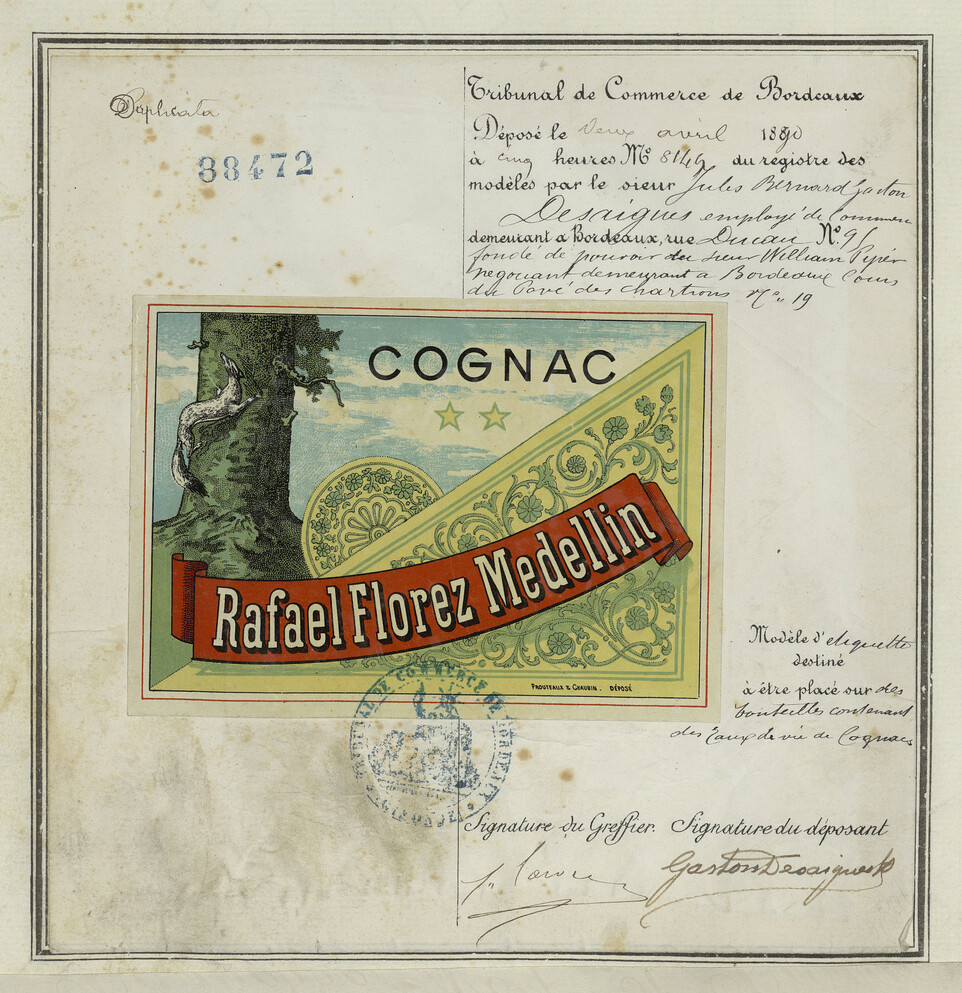 Duplicata
38472
Tribunal de Commerce de Bordeaux
Déposé le deux avril 1890
à cinq heures No du registre des
modèles par le sieur Jules Bernard Gaston
Desaigues employé de commerce
demeurant à Bordeaux, rue No 91
fondé de pouvoir du sieur William Piper
négociant demeurant à Bordeaux Cours
du Pavé des Chartrons No 19
COGNAC
Rafael Florez Medellin
PROUTEAUX & GRAURIN. DÉPOSÉ
TRIBUNAL DE COMMERCE DE BORDEAUX
(GIRONDE)
Modèle d'etiquette
destiné
à être placé sur des
bouteilles contenant
des Eaux de vie de Cognac
Signature du Greffier. Signature du déposant
Gaston Desaigues